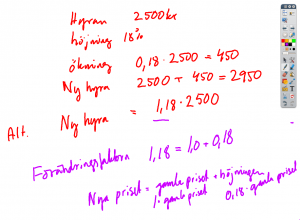 Hyran 2500 kr
höjning 18%
ökning 0,18 · 2500 = 450
Ny hyra 2500 + 450 = 2950
Alt. Ny hyra = 1,18 · 2500
Förändringsfaktorn 1,18 = 1,0 + 0,18
Nya priset = gamla priset + höjningen
1 · gamla priset 0,18 · gamla priset